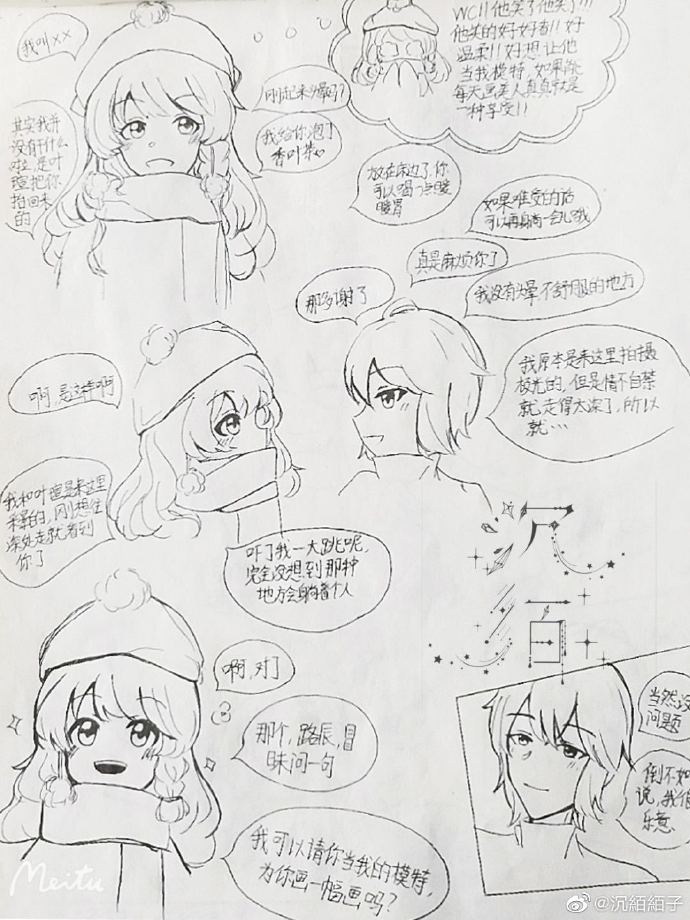 我叫××
其实我并
没有干什么
啦，是叶
瑄把你
拍回来
的
刚起来嗓吗？
我给你泡了
香叶茶
WC!!他笑了他笑了!!!
他笑的好好看!!好
温柔!!好想让他
当我模特，如果能
每天画美人真真就是
一种享受!!
放在床边了，你
可以喝一点暖
暖胃
如果难受的话
可以再躺一会儿哦
真是麻烦你了
那多谢了
我没有为嗓不舒服的地方
我原本是来这里拍摄
极光的，但是情不自禁
就走得太深了，所以
就…
啊，是这样啊
我和叶瑄是来这里
采景的，刚想往
深处走就看到
你了
吓了我一大跳呢，
完全没想到那种
地方会躺着个人
沉
絔
啊，对了
那个，路辰，冒
昧问一句
我可以请你当我的模特，
为你画一幅画吗？
当然没
问题
倒不如
说，我很
乐意
Meitu
@沉絔絔子